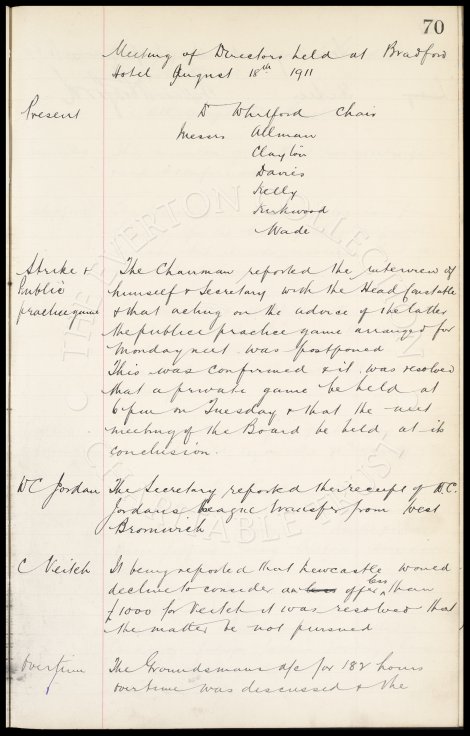 70
Meeting of Directors held at Bradford
Hotel August 18th 1911
Present
Dr Whitford Chair
Messrs Allman
Clayton
Davies
Kelly
Kirkwood
Wade
Strike &
Public
practice game
The Chairman reported the interview of
himself & Secretary with the Head Constable
& that acting on the advice of the latter
the public practice game arranged for
Monday next was postponed
This was confirmed & it was resolved
that a private game be held at
6 pm on Tuesday & that the next
meeting of the Board be held at its
conclusion.
WC Jordan
The Secretary reported the receipt of W.C.
Jordans League transfer from West
Bromwich
C Veitch
It being reported that Newcastle would
decline to consider an less offer less than
£1000 for Veitch it was resolved that
the matter be not pursued
Overtime
The Groundsmans a/c for 182 hours
overtime was discussed & the
THE EVERTON COLLECTION
CHARITABLE TRUST